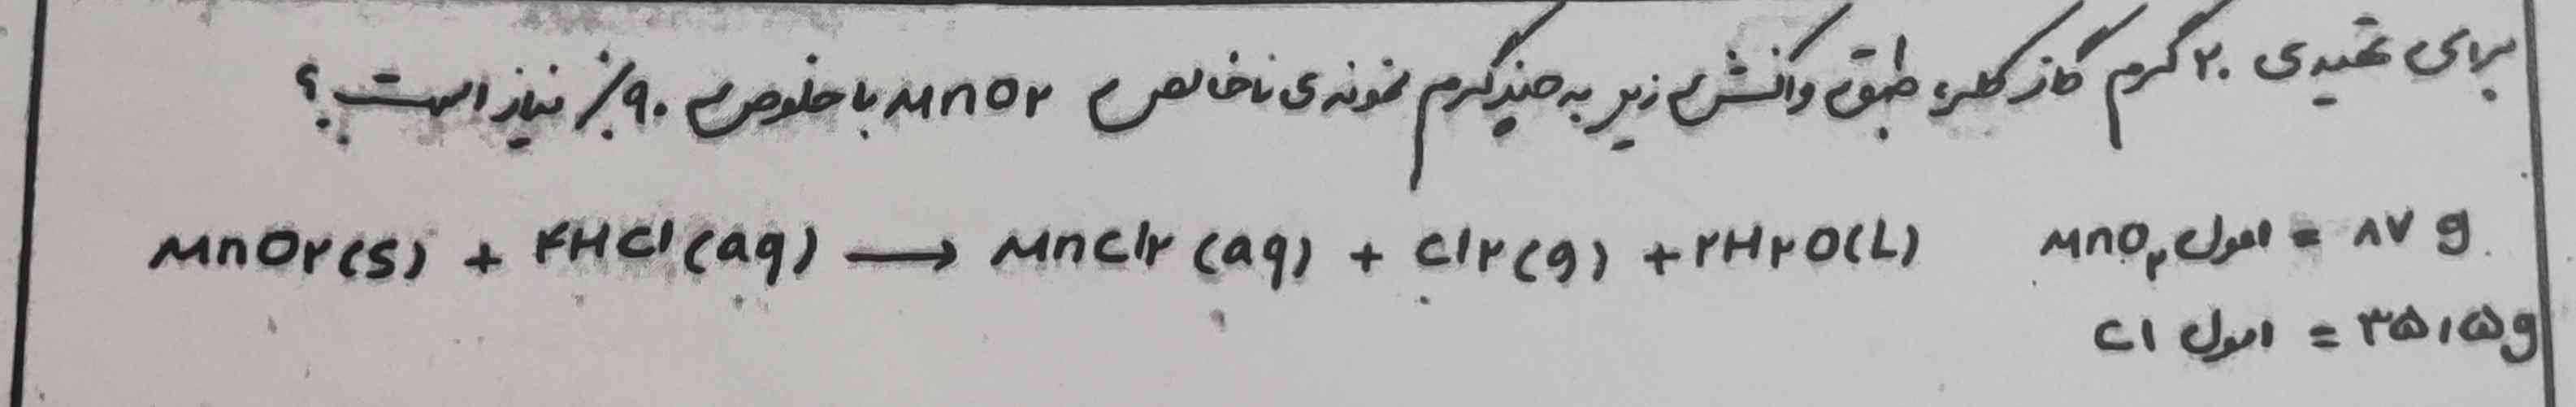 برای تهیه‌ی ۲۰ گرم گاز کلر، طبق واکنش زیر به چند گرم نمونه‌ی ناخالص MnO۲ با خلوص ۹۰٪ نیاز است؟
MnO۲(s) + ۴HCl(aq) → MnCl۲(aq) + Cl۲(g) + ۲H۲O(L) ۱مول MnO۲ = ۸۷ g
۱مول Cl = ۳۵,۵g